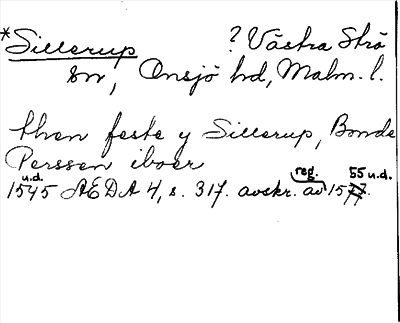 *Sillerup ? Västra Strö
sn, Onsjö hd, Malm. l.
then feste y Sillerup, Bonde
Perssen iboer
u.d. reg. 55 u.d.
1545 AEDA 4, s. 317. avskr. av 1577.